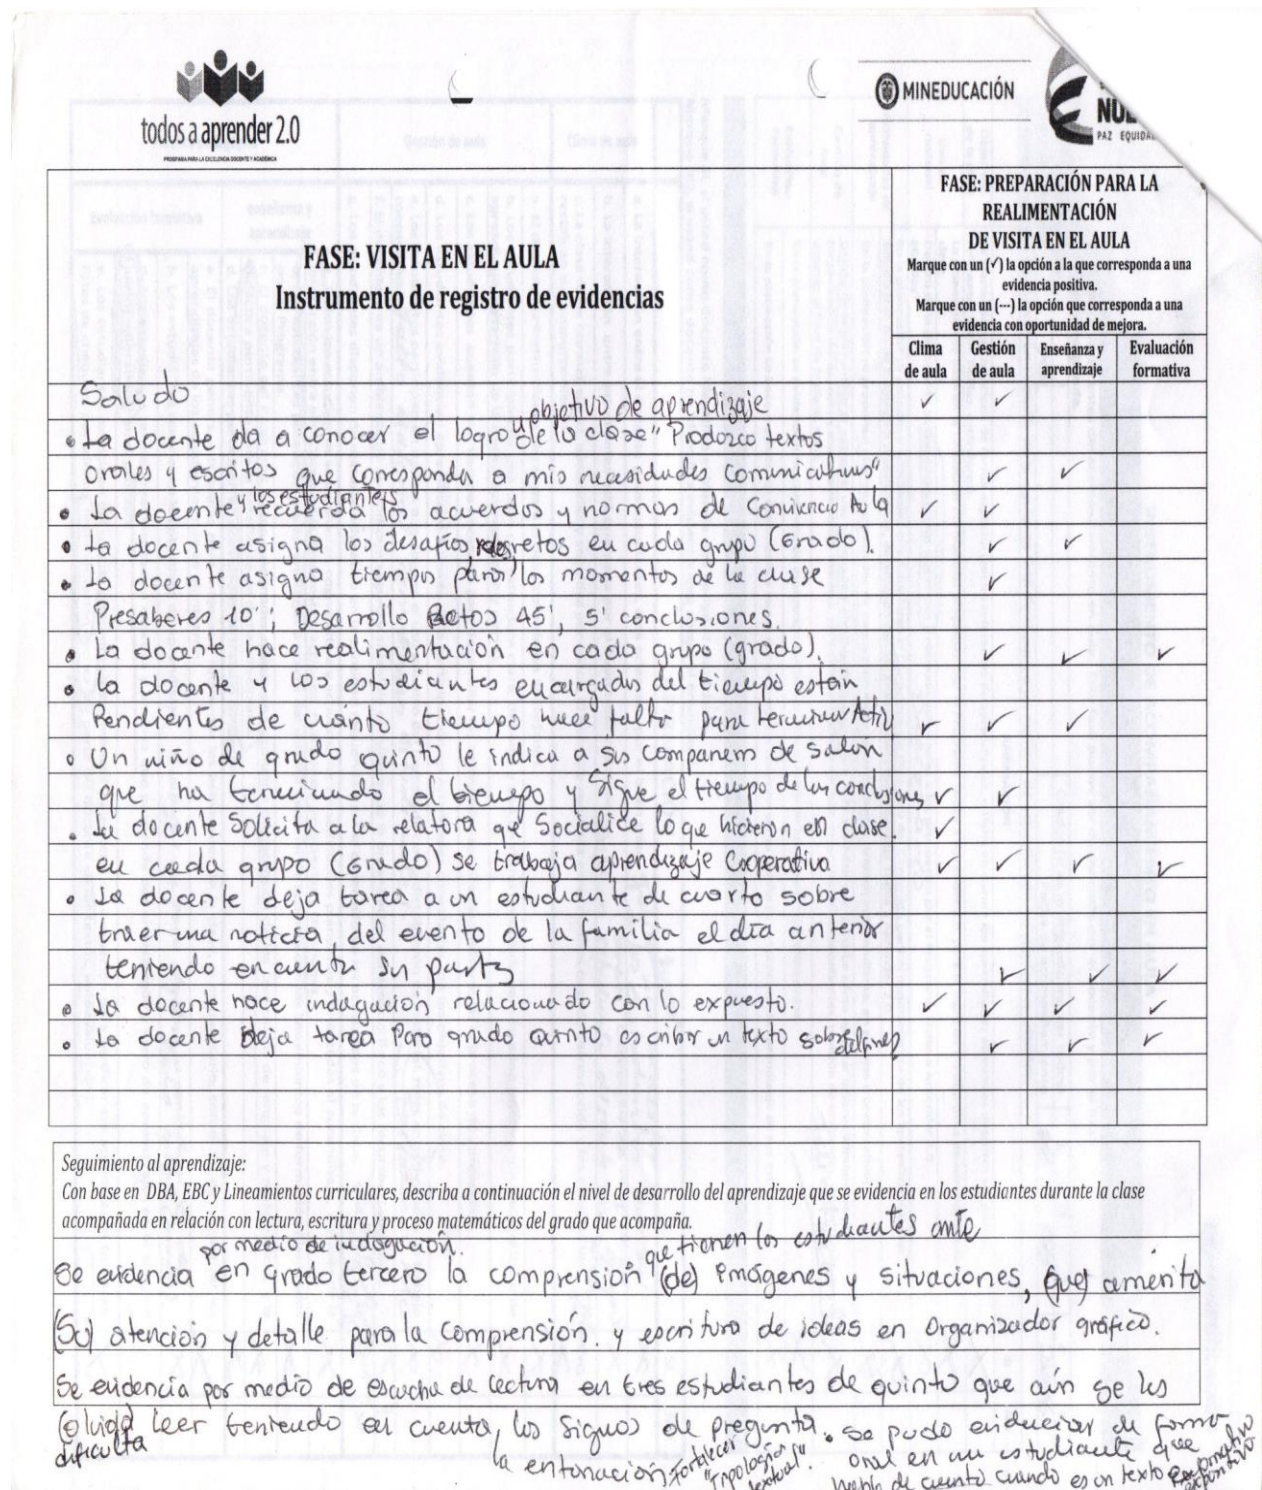 todos a aprender 2.0
PROGRAMA PARA LA EXCELENCIA DOCENTE Y ACADÉMICA
MINEDUCACIÓN
PAZ EQUIDA
FASE: VISITA EN EL AULA
Instrumento de registro de evidencias
FASE: PREPARACIÓN PARA LA
REALIMENTACIÓN
DE VISITA EN EL AULA
Marque con un (✓) la opción a la que corresponda a una
evidencia positiva.
Marque con un (---) la opción que corresponda a una
evidencia con oportunidad de mejora.
Clima de aula
Gestión de aula
Enseñanza y aprendizaje
Evaluación formativa
Saludo ✓ ✓
y objetivo de aprendizaje
• La docente da a conocer el logro de la clase "Produzco textos
orales y escritos que corresponda a mis necesidades comunicativas" ✓ ✓
y los estudiantes
• La docente recuerda los acuerdos y normas de Convivencia Aula ✓ ✓
• La docente asigna los desafios, retos en cada grupo (Grado). ✓ ✓
• La docente asigna tiempos para los momentos de la clase ✓
Presaberes 10'; Desarrollo Retos 45', 5' conclusiones.
• La docente hace realimentación en cada grupo (grado). ✓ ✓ ✓
• La docente y los estudiantes encargados del tiempo están
Pendientes de cuánto tiempo hace falta para terminar Activ ✓ ✓ ✓
• Un niño de grado quinto le indica a sus companeros de salón
que ha terminado el tiempo y sigue el tiempo de las conclusiones ✓ ✓
• La docente Solicita a la relatora que Socialice lo que hicieron en clase. ✓
en cada grupo (Grado) se trabaja aprendizaje Cooperativo ✓ ✓ ✓ ✓
• La docente deja tarea a un estudiante de cuarto sobre
traer una noticia, del evento de la familia el día anterior
teniendo en cuenta su partes ✓ ✓ ✓
• La docente hace indagación relacionado con lo expuesto. ✓ ✓ ✓ ✓
• La docente deja tarea Para grado quinto escribir un texto sobre delfines ✓ ✓ ✓
Seguimiento al aprendizaje:
Con base en DBA, EBC y Lineamientos curriculares, describa a continuación el nivel de desarrollo del aprendizaje que se evidencia en los estudiantes durante la clase
acompañada en relación con lectura, escritura y proceso matemáticos del grado que acompaña.
por medio de indagación. que tienen los estudiantes ante
Se evidencia en grado tercero la comprensión (de) imágenes y situaciones, (que) amerita
(Su) atención y detalle para la comprensión. y escritura de ideas en Organizador gráfico.
Se evidencia por medio de escucha de lectura en tres estudiantes de quinto que aún se les
(olvida) leer teniendo en cuenta, los signos de pregunta. Se pudo evidenciar de forma
dificulta la entonación, fortalecer "Tipología textual". oral en un estudiante que
habla de cuento cuando es un texto informativo expositivo.